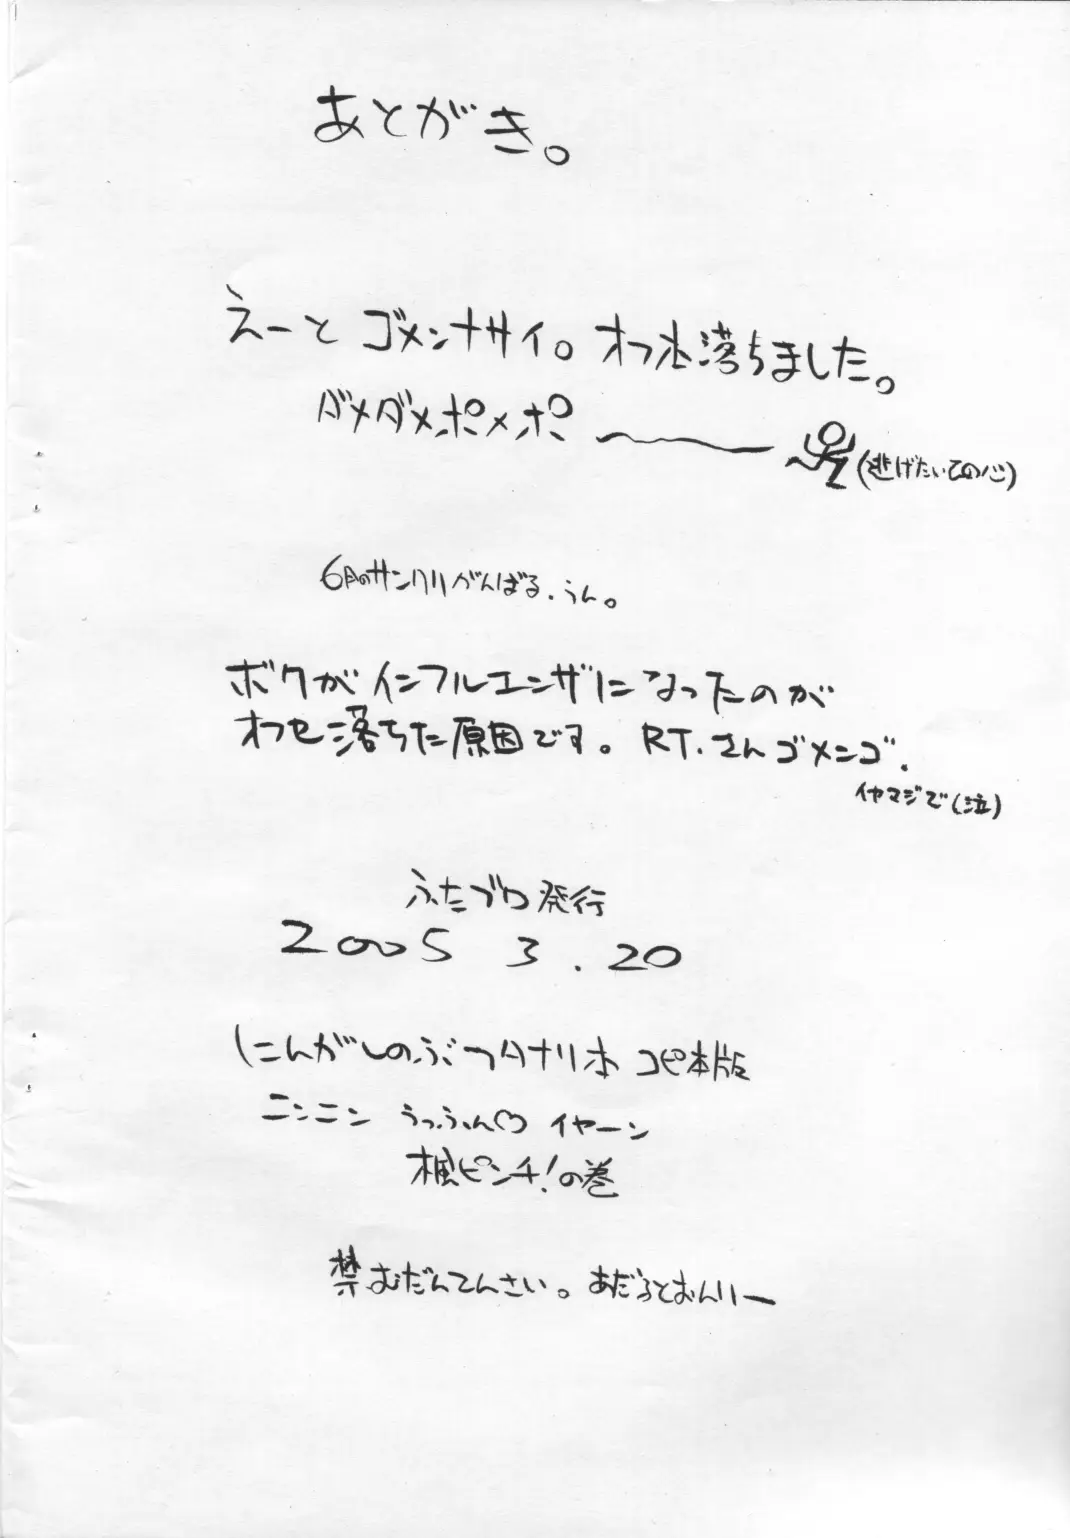 あとがき。
えーと ゴメンナサイ。オフ本落ちました。
ダメダメポメポ
(逃げたいての心)
6月のサンクリがんばる、うん。
ボクがインフルエンザになったのが
オフセ落ちた原因です。RT.さんゴメンゴ。
イヤマジで(泣)
ふたブロ発行
2005 3.20
にんがしのぶつタナリ本 コピ本版
ニンニン うっふん♡ イヤーン
楓ピンチ!の巻
禁むだんてんさい。あだるとおんりー